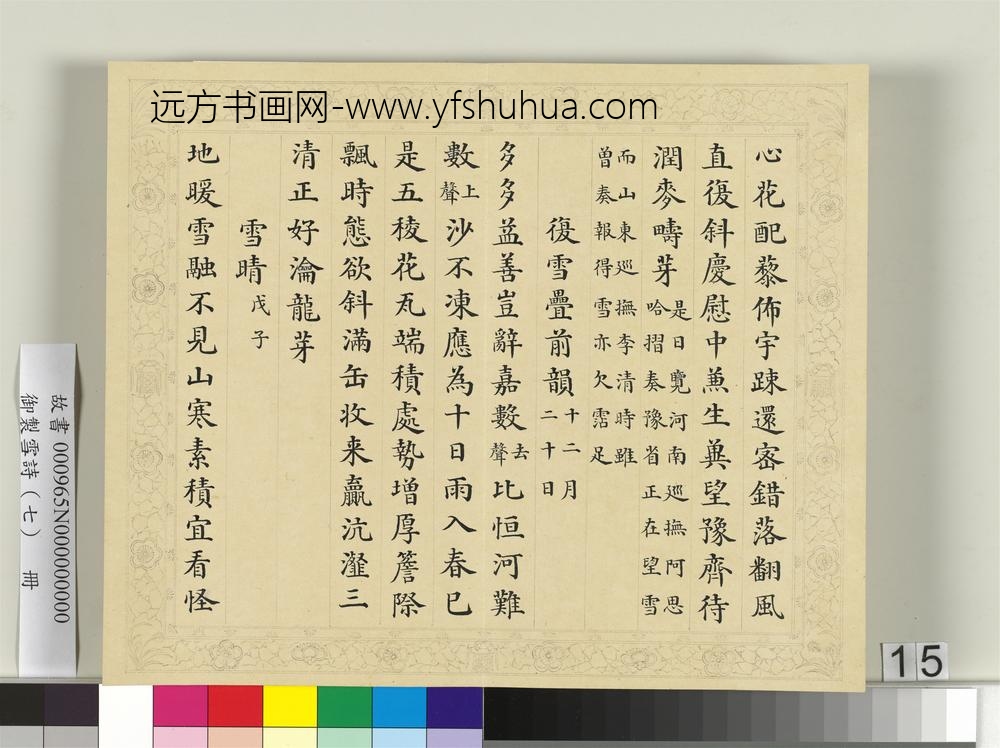 远方书画网-www.yfshuhua.com
心花配藜佈宇踈還宻錯落翻風
直復斜慶慰中蕙生兾望豫齊待
潤麥疇芽是日覽河南巡撫阿思
哈摺奏豫省正在望雪
而山東巡撫李清時雖
曽奏報得雪亦欠霑足
復雪疊前韻十二月
二十日
多多益善豈辭嘉數去
聲比恒河難
數上
聲沙不凍應為十日雨入春已
是五稜花瓦端積處勢增厚簷際
飄時態欲斜滿缶收来贏沆瀣三
清正好瀹龍芽
雪晴戊
子
地暖雪融不見山寒素積宜看怪
故書000965N000000000
御製雪詩（七） 冊
15